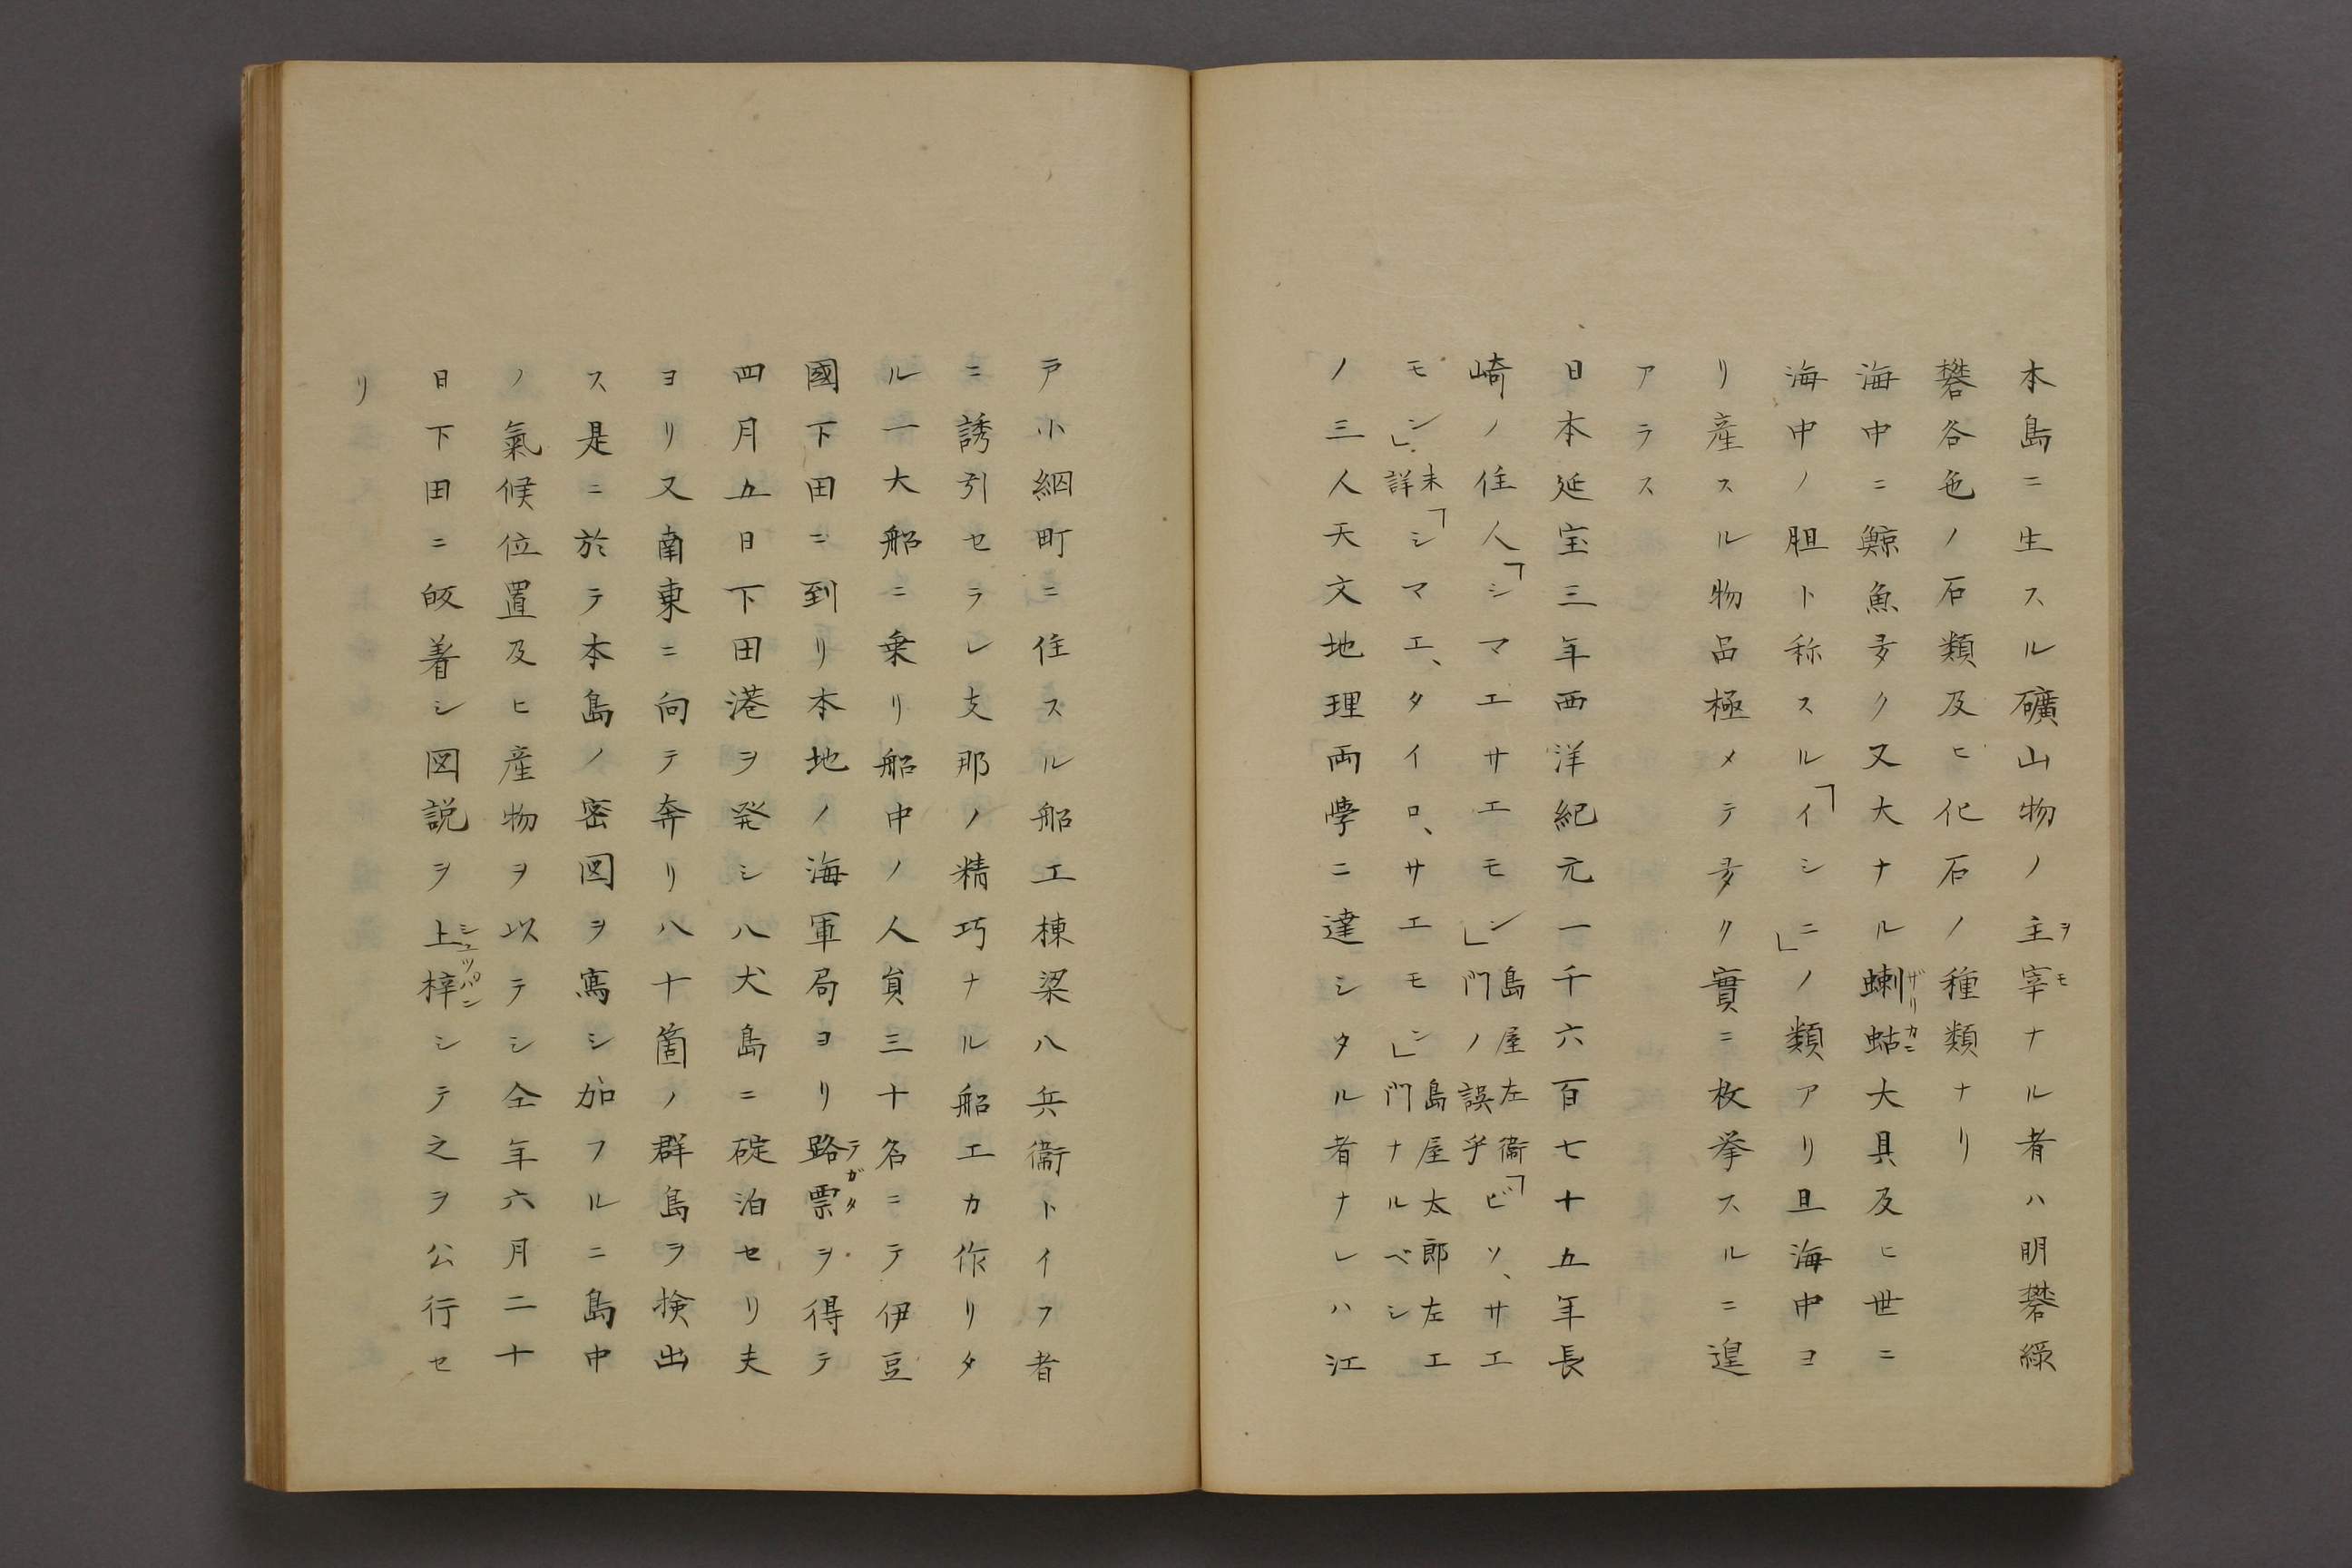 本島ニ生スル礦山物ノ主宰ナル者ハ明礬緑
ヲモ
礬各色ノ石類及ヒ化石ノ種類ナリ
海中ニ鯨魚多ク又大ナル蝲蛄大具及ヒ世ニ
ザリカニ
海中ノ胆ト称スル「イシニ」ノ類アリ且海中ヨ
リ産スル物品極メテ多ク實ニ枚挙スルニ遑
アラス
日本延宝三年西洋紀元一千六百七十五年長
崎ノ住人「シマエサエモン」島屋左衛門ノ誤乎「ビソ、サエ
モン」未詳「シマエ、タイロ、サエモン」島屋太郎左エ門ナルベシ
ノ三人天文地理両學ニ達シタル者ナレハ江
戸小網町ニ住スル船工棟梁八兵衞トイフ者
ニ誘引セラレ支那ノ精巧ナル船工カ作リタ
ル一大船ニ乗リ船中ノ人員三十名ニテ伊豆
國下田ニ到リ本地ノ海軍局ヨリ路票ヲ得テ
テガタ
四月五日下田港ヲ発シ八犬島ニ碇泊セリ夫
ヨリ又南東ニ向テ奔リ八十箇ノ群島ヲ検出
ス是ニ於テ本島ノ密図ヲ寫シ加フルニ島中
ノ氣候位置及ヒ産物ヲ以テシ仝年六月二十
日下田ニ皈着シ図説ヲ上梓シテ之ヲ公行セ
シュツパン
リ